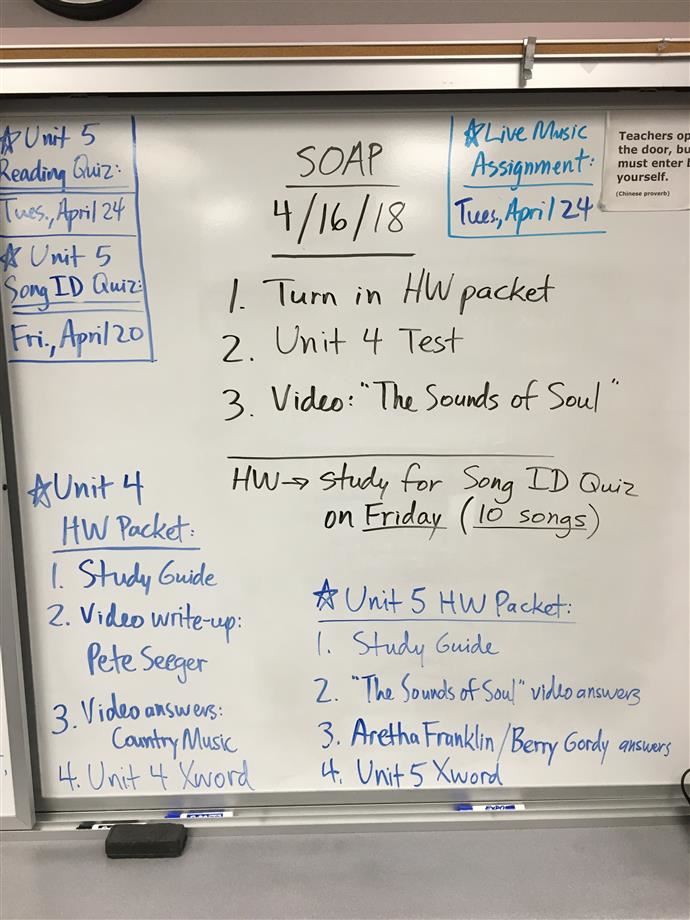 ☆ Unit 5
Reading Quiz:
Tues., April 24
☆ Unit 5
Song ID Quiz:
Fri., April 20
SOAP
4/16/18
1. Turn in HW packet
2. Unit 4 Test
3. Video: "The Sounds of Soul"
HW → Study for Song ID Quiz
on Friday (10 songs)
☆ Live Music
Assignment:
Tues, April 24
Teachers op
the door, bu
must enter b
yourself.
(Chinese proverb)
☆ Unit 4
HW Packet:
1. Study Guide
2. Video write-up:
Pete Seeger
3. Video answers:
Country Music
4. Unit 4 Xword
☆ Unit 5 HW Packet:
1. Study Guide
2. "The Sounds of Soul" video answers
3. Aretha Franklin/Berry Gordy answers
4. Unit 5 Xword
EXPO